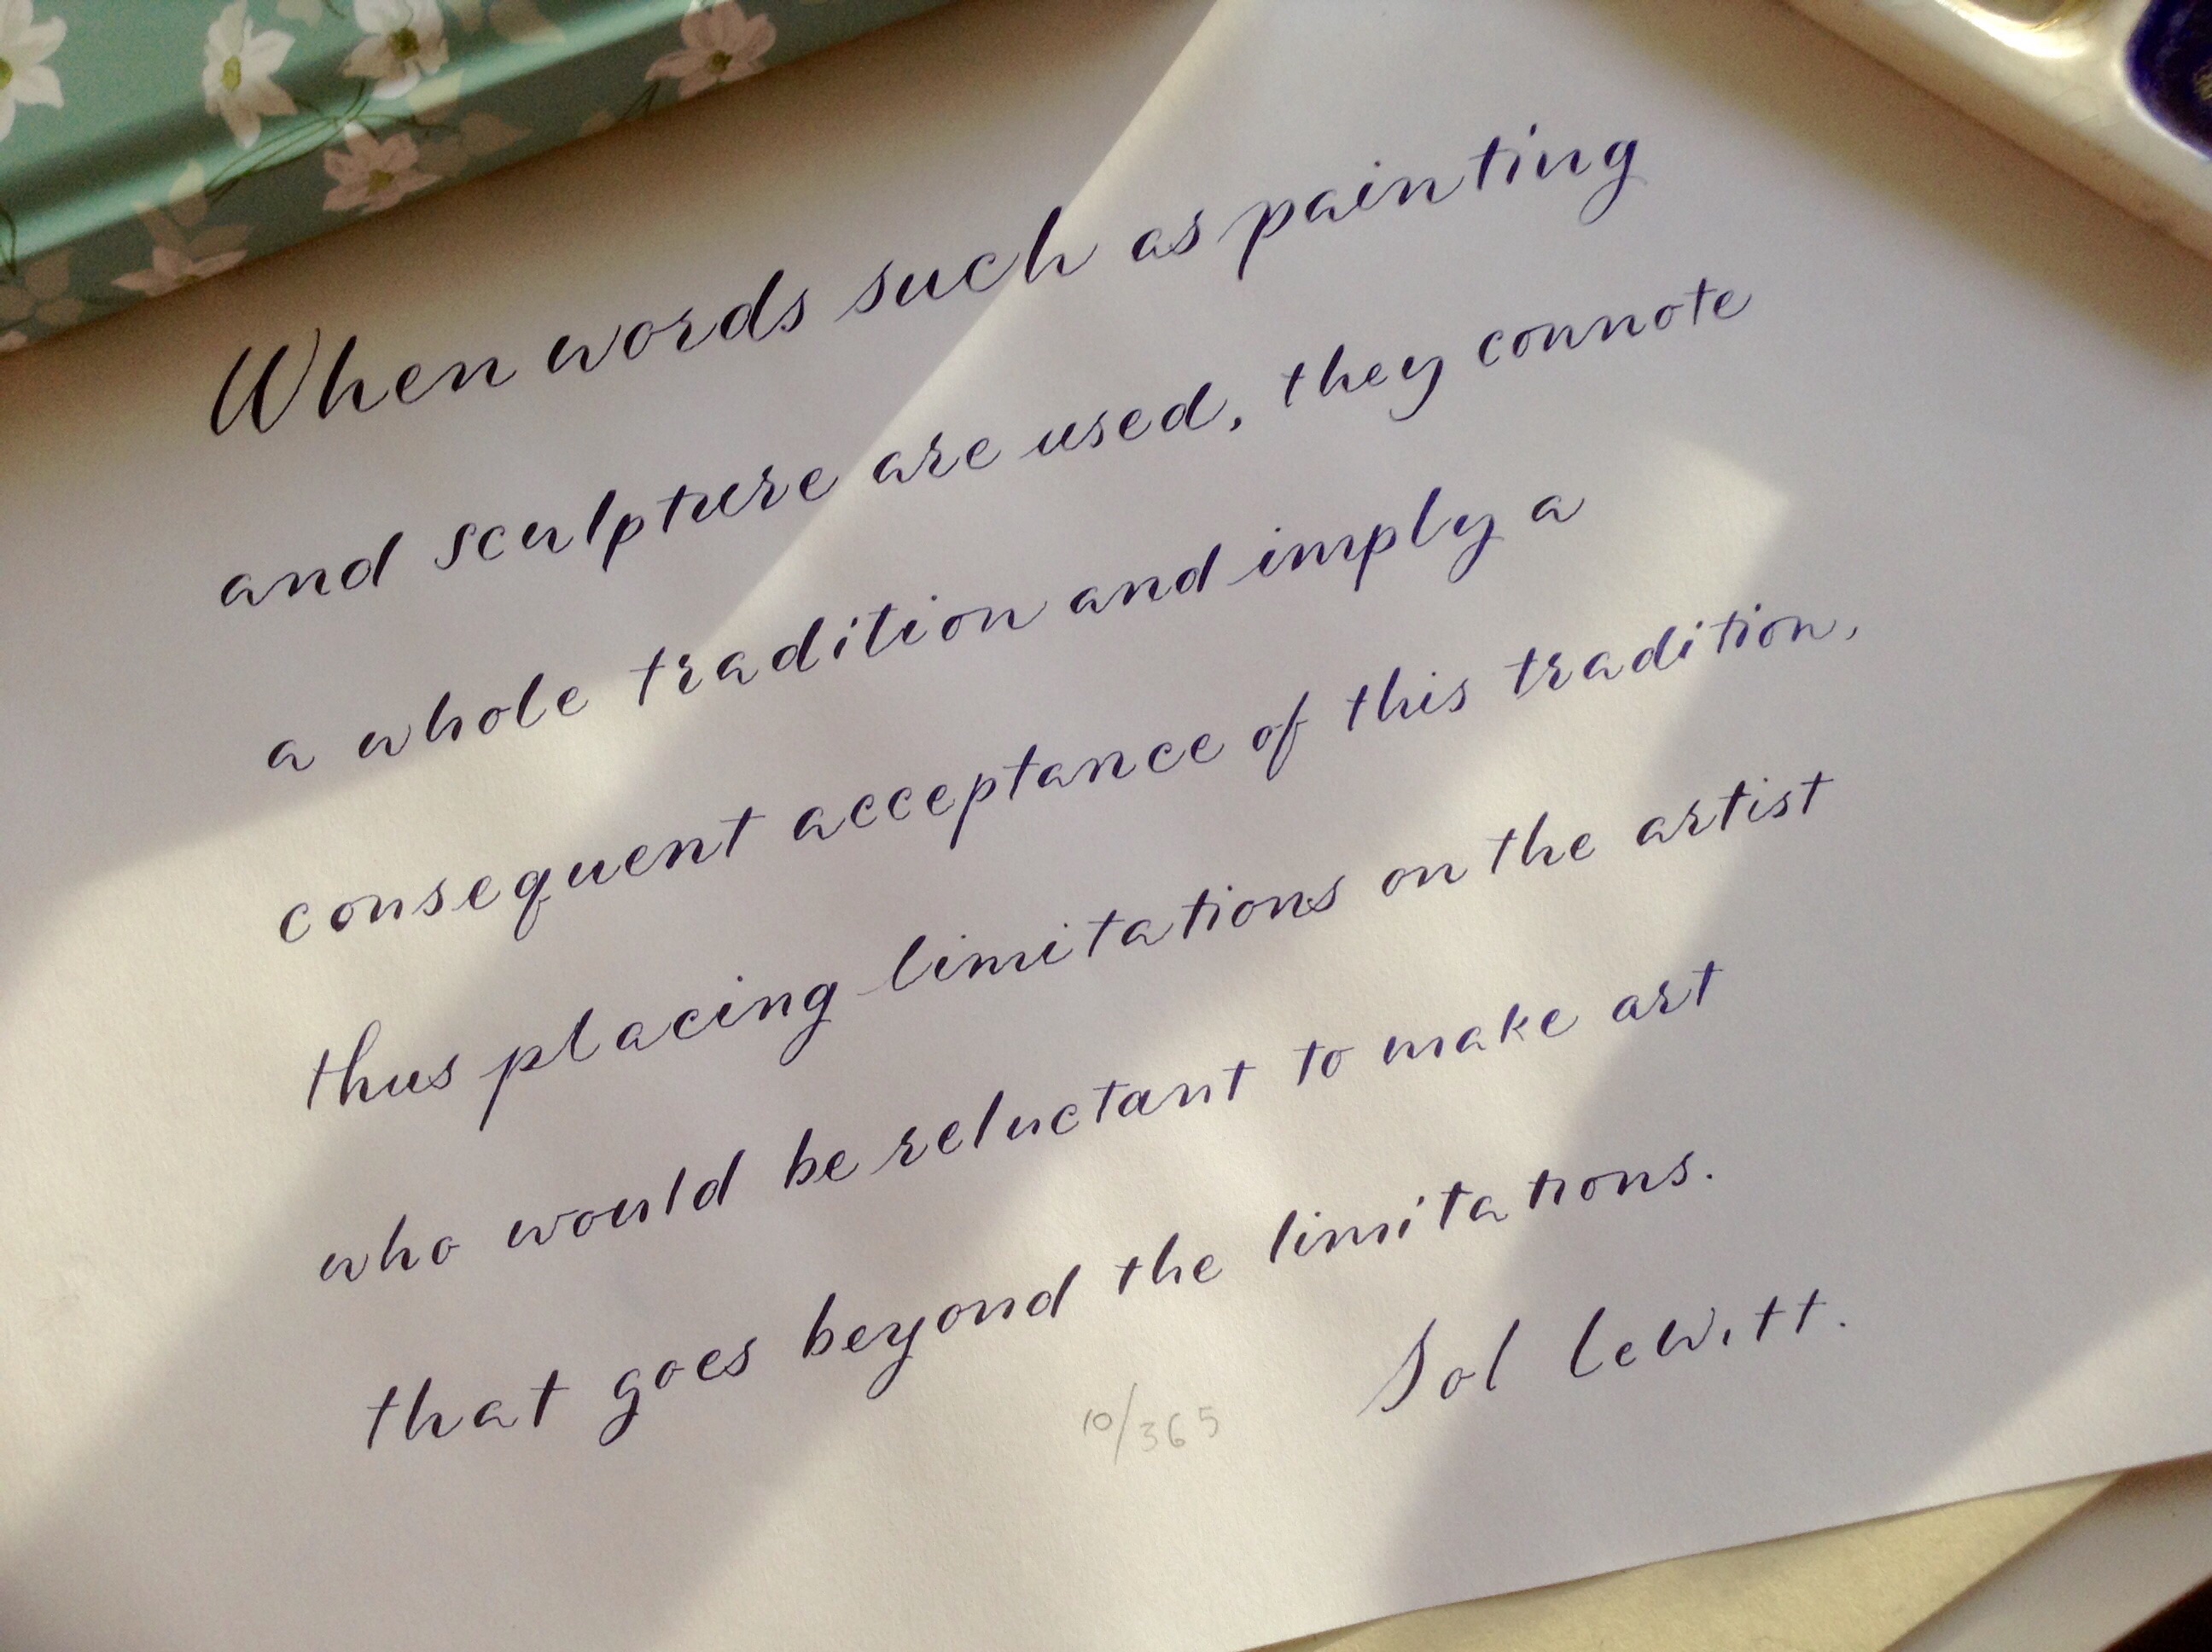 When words such as painting
and sculpture are used, they connote
a whole tradition and imply a
consequent acceptance of this tradition,
thus placing limitations on the artist
who would be reluctant to make art
that goes beyond the limitations.
Sol LeWitt.
10/365